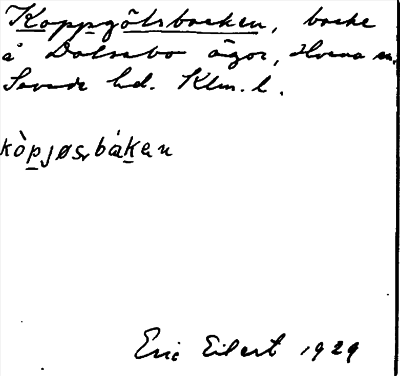 Koppgölsbacken, backe
å Dalsebo ägor, Hvena sn.
Sevede hd. Klm. l.
kòpjøsˬbák̠en
Eric Eilert 1929